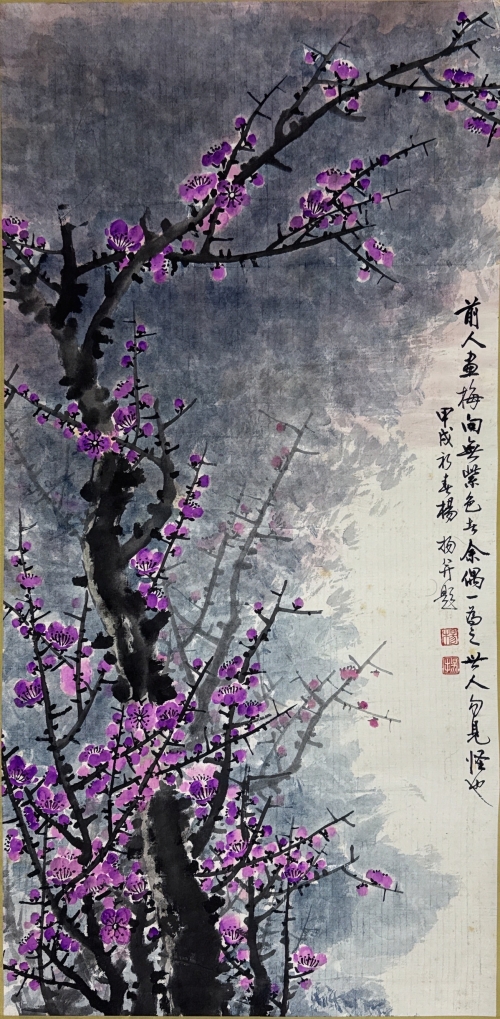 前人畫梅向無紫色者余偶一為之世人勿見怪也
甲戌初春楊揚并題